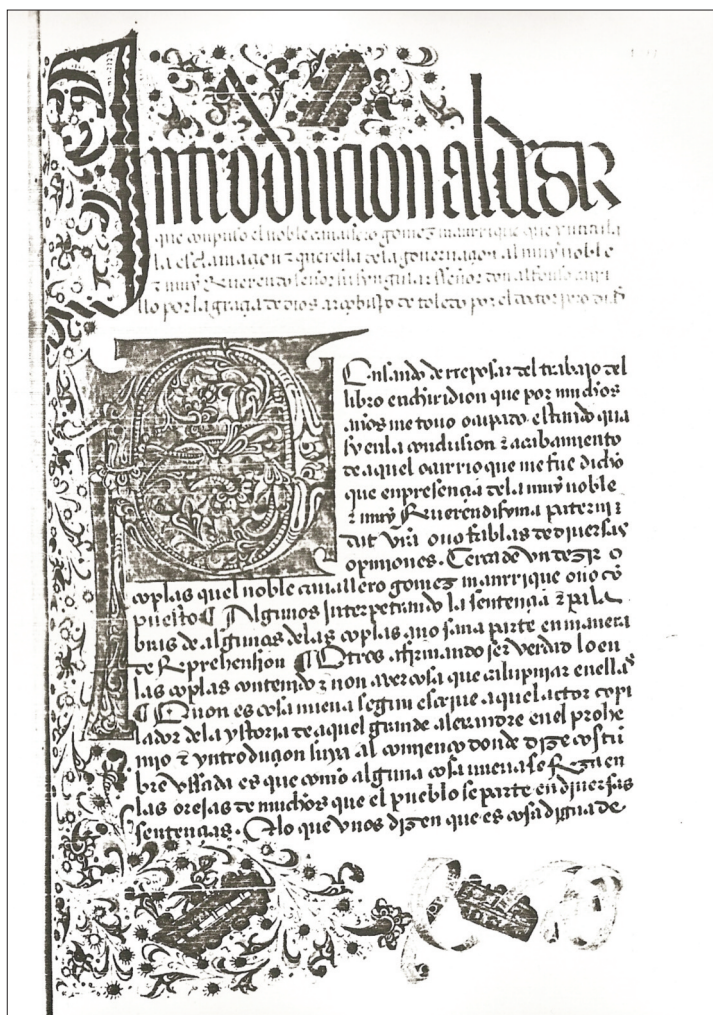 Introducion al dezir
que conpuso el noble cauallero gomez manrrique que yntitula
la esclamaçion z querella dela gouernaçion al muy noble
z muy Reuerendo señor su syngular señor don alfonso carri
llo por la graçia de dios arçobispo de toledo por el dotor pero dias
Pensando de rreposar del trabajo del
libro enchiridion que por muchos
años me touo ocupado estando qua
sy enla conclusion z acabamiento
de aquel ocurrio que me fue dicho
que en presençia dela muy noble
z muy Reuerendisyma paterni
dat vrã ouo fablas de diuersas
opiniones. Cerca de vn dezir o
coplas quel noble cauallero gomez manrrique ouo cõ
puesto Algunos interpretando la sentençia z pala
bras de algunas delas coplas a no sana parte en manera
de Reprehension Otros afirmando ser verdad lo en
las coplas contenido z non auer cosa que calupniar enellas
E non es cosa nueua segun escriue aquel actor copi
lador dela ystoria de aquel grande alexandre enel prohe
mio z yntroduçion suya al comienço donde dize costũ
bre vssada es que como alguna cosa nueua se Reza en
las orejas de muchos que el pueblo se parte en diuersas
sentençias. A lo que vnos dizen que es cosa digna de